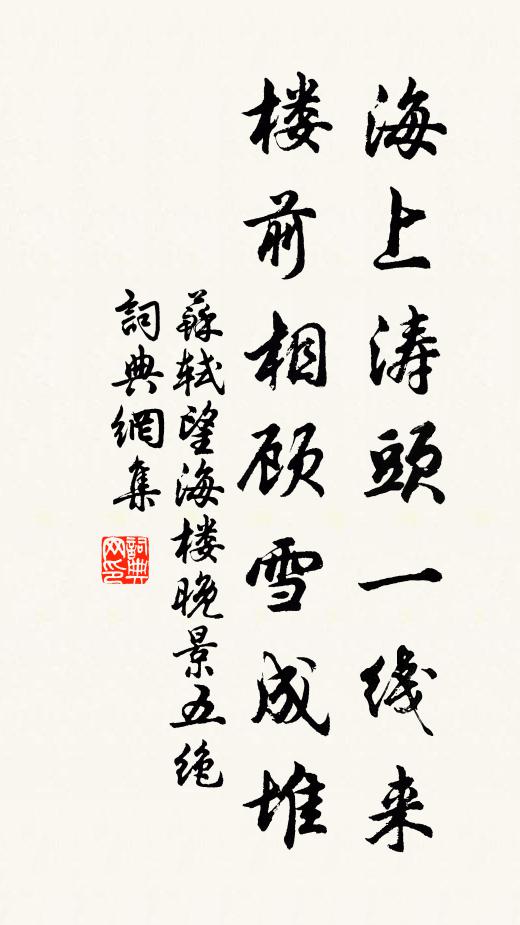 海上涛頭一线来
楼前相顾雪成堆
蘇轼望海楼晚景五绝
詞典網集
詞典网印